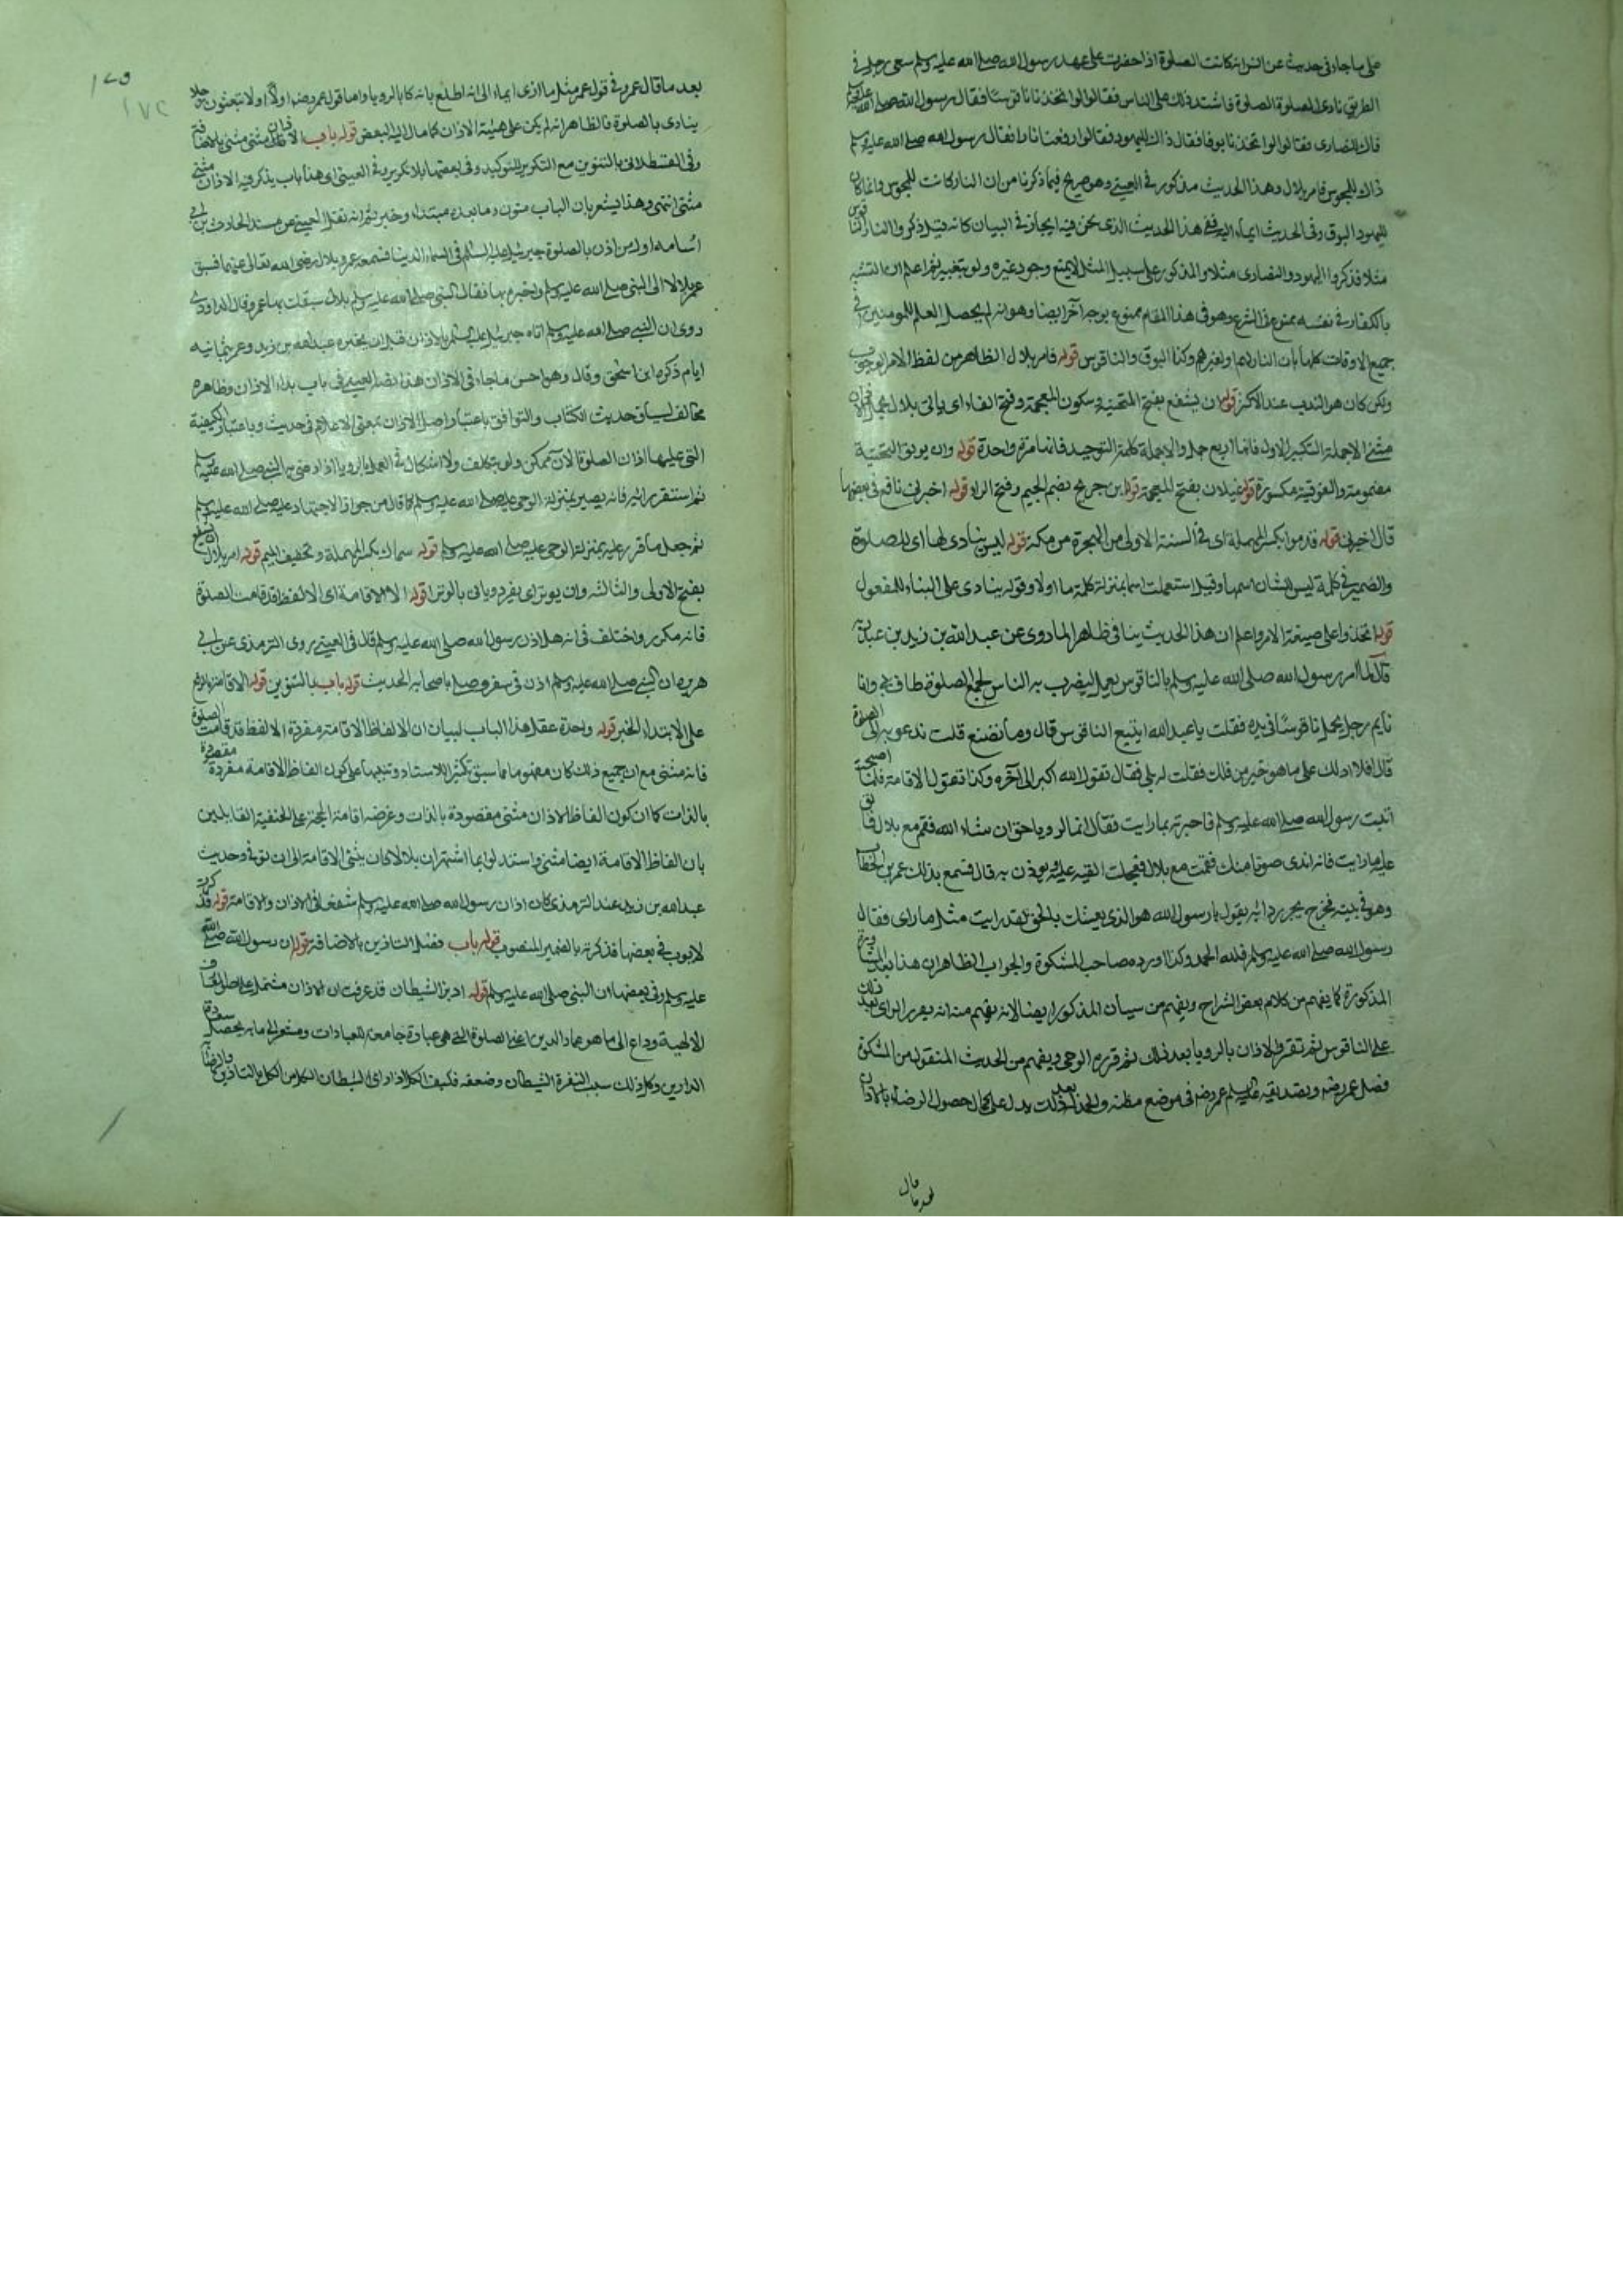 على ما جاء في حديث عن انس انه كانت الصلوة اذا حضرت على عهد رسول الله صلى الله عليه وسلم سعى رجل في
الطريق نادى الصلوة الصلوة فاشتد ذلك على الناس فقالوا لو اتخذنا ناقوسا فقال رسول الله صلى الله عليه وسلم
ذلك للنصارى فقالوا لو اتخذنا بوقا فقال ذاك لليهود فقالوا لو رفعنا نارا فقال رسول الله صلى الله عليه وسلم
ذاك للمجوس فامر بلال وهذا الحديث مذكور في العيني وهو صريح فيما ذكرنا من ان النار كانت للمجوس وانما كان
لليهود البوق وفي الحديث ايماء اليه ففي هذا الحديث الذي نحن فيه ايجاز في البيان كانه قيل ذكروا النار والناقوس
مثلا فذكروا اليهود والنصارى مثلا والمذكور على سبيل المثل لا يمنع وجود غيره ثم اعلم ان التشبه
بالكفار في نفسه ممنوع في الشرع وهو في هذا المقام ممنوع بوجه آخر ايضا وهو انه لم يحصل العلم للمومنين في
جميع الاوقات كلها بان النار لهم او لغيرهم وكذا البوق والناقوس قوله فامر بلال الظاهر من لفظ الامر الوجوب
ولكن كان هو الندب عند الاكثر قوله ان يشفع بفتح التحتية وسكون المعجمة وفتح الفاء اي ياتي بلال بجمل الاذان
مثنى الا جملة التكبير الاول فانها اربع جمل والا جملة كلمة التوحيد فانها مرة واحدة قوله وان يوتر التحتية
مضمومة والفوقية مكسورة قوله غيلان بفتح المعجمة قوله ابن جريج بضم الجيم وفتح الراء قوله اخبرني نافع في بعضها
قال اخبرني قوله قدموا بكسر المهملة اي في السنة الاولى من الهجرة من مكة قوله ليس ينادى لها اي للصلوة
والضمير في كلمة ليس للشان اسمها وقيل استعملت اسما بمنزلة كلمة ما او لا وقوله ينادى على البناء للمفعول
قوله اتخذوا على صيغة الامر واعلم ان هذا الحديث ينافي ظاهر الما روى عن عبد الله بن زيد بن عبد ربه
قال لما امر رسول الله صلى الله عليه وسلم بالناقوس يعمل ليضرب به الناس لجمع الصلوة طاف بي وانا
نايم رجل يحمل ناقوسا في يده فقلت يا عبد الله اتبيع الناقوس قال وما تصنع قلت ندعو به الى الصلوة
قال افلا ادلك على ما هو خير من ذلك فقلت له بلى فقال تقول الله اكبر الى آخره وكذا تقول الاقامة فلما اصبحت
اتيت رسول الله صلى الله عليه وسلم فاخبرته بما رايت فقال انها لرويا حق ان شاء الله فقم مع بلال فالق
عليه ما رايت فانه اندى صوتا منك فقمت مع بلال فجعلت القيه عليه ويوذن به قال فسمع بذلك عمر بن الخطاب
وهو في بيته فخرج يجر رداءه يقول يا رسول الله هو الذي بعثك بالحق لقد رايت مثل ما راى فقال
رسول الله صلى الله عليه وسلم فلله الحمد وكذا اورده صاحب المشكوة والجواب الظاهر ان هذا بعد المشاورة
المذكورة كما يفهم من كلام بعض الشراح ويفهم من سياق المذكور ايضا لانه يفهم منه انه تقرر الراى بعد ذلك
على الناقوس ثم تقرر الاذان بالرويا بعد ذلك ثم قرره الوحي ويفهم من الحديث المنقول من المشكوة
فضل عمر رضه وتصديقه عليه السلم عمر رضه في موضع مظنة والحمد بعد ذلك يدل على كمال حصول الرضاء بالاذان
بعد ما قال
بعد ما قال عمر وفي قول عمر مثل ما ارى ايماء الى انه اطلع بانه كان بالرويا واما قول عمر رضه اولا اولا تبعثون رجلا
ينادى بالصلوة فالظاهر انه لم يكن على هيئة الاذان كما مال اليه البعض قوله باب الاذان مثنى مثنى بالاضافة
وفي القسطلاني بالتنوين مع التكرير للتوكيد وفي بعضها بلا تكرير وفي العيني اي هذا باب يذكر فيه الاذان مثنى
مثنى انتهى وهذا يشعر بان الباب منون وما بعده مبتداء وخبر ثم انه نقل العيني عن مسند الحارث بن ابي
اسامة اول من اذن بالصلوة جبرئيل عليه السلم في السماء الدنيا فسمعه عمر وبلال رضى الله تعالى عنهما فسبق
عمر بلالا الى النبي صلى الله عليه وسلم واخبره بها فقال النبي صلى الله عليه وسلم بلال سبقك بها عمر وقال الداودي
روى ان النبي صلى الله عليه وسلم اتاه جبرئيل عليه السلم بالاذان قبل ان يخبره عبد الله بن زيد وعمر بثمانية
ايام ذكره ابن اسحق وقال وهو احسن ما جاء في الاذان هذا نقل العيني في باب بدء الاذان وظاهره
مخالف لسياق حديث الكتاب والتوافق باعتبار اصل الاذان بمعنى الاعلام في حديث وباعتبار الكيفية
التي عليها اذان الصلوة الآن ممكن ولو بتكلف ولا اشكال في العمل بالرويا اذا رضى به النبي صلى الله عليه وسلم
ثم استقر رايه فانه يصير بمنزلة الوحي عليه صلى الله عليه وسلم كما قال من جواز الاجتهاد عليه صلى الله عليه وسلم
ثم جعل ما قرر عليه بمنزلة الوحي عليه صلى الله عليه وسلم قوله سماك بكسر المهملة وتخفيف الميم قوله امر بلال ان يشفع
بفتح الاولى والثالثه وان يوتر اي يفرد وياتي بالوتر قوله الا الاقامة اي الا لفظ قد قامت الصلوة
فانه مكرر واختلف في انه هل اذن رسول الله صلى الله عليه وسلم قال في العيني روى الترمذي عن ابي
هريره ان النبي صلى الله عليه وسلم اذن في سفر وصلى باصحابه الحديث قوله باب بالتنوين قوله الاقامة بالرفع
على الابتداء والخبر قوله واحدة عقد هذا الباب لبيان ان الالفاظ الاقامة مفردة الا لفظ قد قامت الصلوة
فانه مثنى مع ان جميع ذلك كان مفهوما مما سبق تكثيرا للاسناد وتنبيها على كون الفاظ الاقامة مفردة مقصودة
بالذات كما ان كون الفاظ الاذان مثنى مقصودة بالذات وغرضه اقامة الحجة على الحنفية القايلين
بان الفاظ الاقامة ايضا مثنى واستدلوا بما اشتهر ان بلالا كان يثنى الاقامة الى ان توفي وحديث
عبد الله بن زيد عند الترمذي كان اذان رسول الله صلى الله عليه وسلم شفعا في الاذان والاقامة قوله فذكرت
لايوب في بعضها فذكرته بالضمير المنصوب قوله باب فضل التاذين بالاضافة قوله ان رسول الله صلى الله
عليه وسلم وفي بعضها ان النبي صلى الله عليه وسلم قوله ادبر الشيطان قد عرفت ان الاذان مشتمل على
الالهية وداع الى ما هو عماد الدين اعني الصلوة التي هي عبادة جامعة للعبادات ومشعر الى ما به يحصل سعادة
الدارين وكل ذلك سبب النفرة الشيطان وضعفه